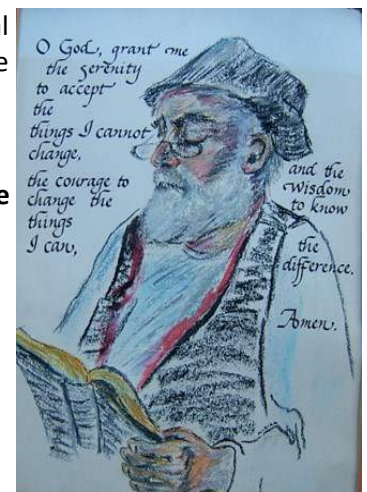 al
e
e
O God, grant me
the serenity
to accept
the
things I cannot
change,
the courage to
change the
things
I can,
and the
wisdom
to know
the
difference.
Amen.